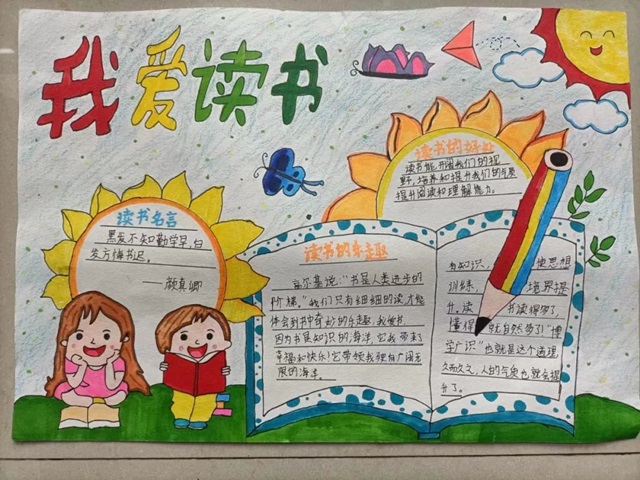 我爱读书
读书的好处
读书能开阔我们的视
野,培养和提升我们的气质
提升阅读和理解能力。
读书名言
黑发不知勤学早,白
发方悔书迟。
——颜真卿
读书的乐趣
高尔基说:"书是人类进步的
阶梯。"我们只有细细的读才能
体会到书中奇妙的乐趣,我爱书
因为书是知识的海洋,它我带来了
幸福和快乐!它带领我驶向广阔无
展的海洋。
有知识,
使思想
训练,
培养提
升。读
书读得多了,
懂得
就自然多了!"博
学广识"也就是这个道理,
久而久之,人的气质也就会提
升了。